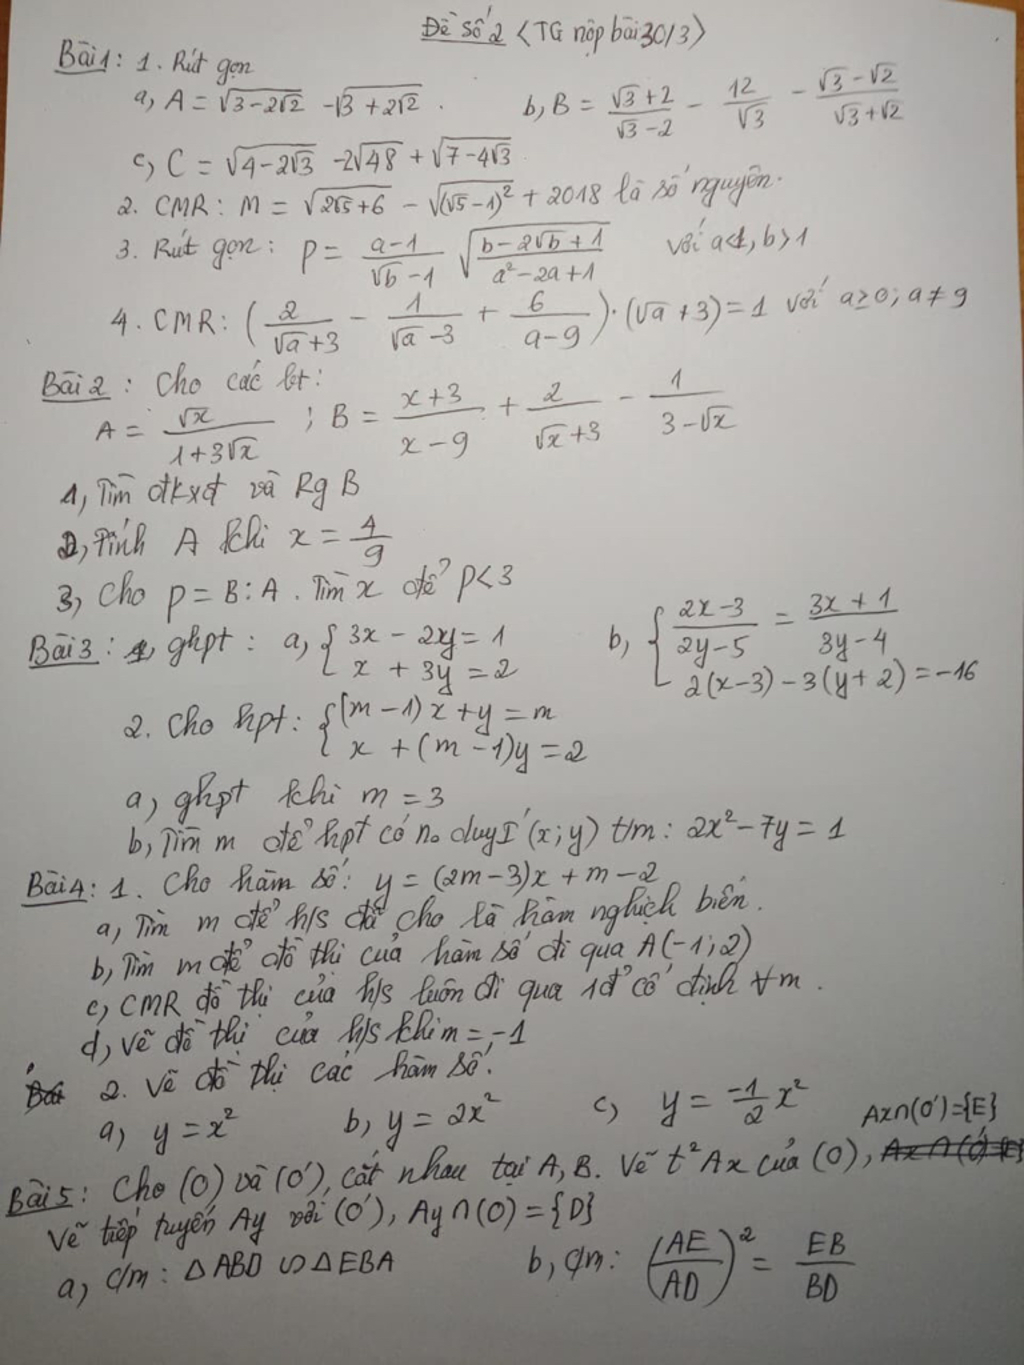 Đề số 2 <TG nộp bài 30/3>
Bài 1: 1. Rút gọn
a, A = √(3-2√2) - √(3+2√2) . b, B = (√3+2)/(√3-2) - 12/√3 - (√3-√2)/(√3+√2)
c, C = √(4-2√3) - 2√48 + √(7-4√3)
2. CMR: M = √(2√5+6) - √((√5-1)²) + 2018 là số nguyên.
3. Rút gọn: P = (a-1)/(√b-1) √((b-2√b+1)/(a²-2a+1)) với a<1, b>1
4. CMR: (2/(√a+3) - 1/(√a-3) + 6/(a-9)).(√a+3) = 1 với a≥0; a≠9
Bài 2: Cho các bt:
A = √x/(1+3√x) ; B = (x+3)/(x-9) + 2/(√x+3) - 1/(3-√x)
1, Tìm đkxđ và Rg B
2, Tính A khi x = 4/9
3, Cho P = B:A. Tìm x để P<3
Bài 3: 1, ghpt: a, {3x - 2y = 1 b, {(2x-3)/(2y-5) = (3x+1)/(3y-4)
x + 3y = 2 2(x-3) - 3(y+2) = -16
2. Cho hpt: {(m-1)x + y = m
x + (m-1)y = 2
a, ghpt khi m = 3
b, Tìm m để hpt có no duy I' (x;y) t/m: 2x² - 7y = 1
Bài 4: 1. Cho hàm số: y = (2m-3)x + m-2
a, Tìm m để h/s đã cho là hàm nghịch biến.
b, Tìm m để đồ thị của hàm số đi qua A(-1;2)
c, CMR đồ thị của h/s luôn đi qua 1đ' cố định ∀m.
d, Vẽ đồ thị của h/s khi m = -1
2. Vẽ đồ thị các hàm số:
a, y = x² b, y = 2x² c, y = -1/2 x²
Ax∩(O')={E}
Bài 5: Cho (O) và (O'), cắt nhau tại A, B. Vẽ t² Ax của (O),
Vẽ tiếp tuyến Ay với (O'), Ay∩(O) = {D}
a, c/m: ΔABD ∽ ΔEBA b, c/m: (AE/AD)² = EB/BD